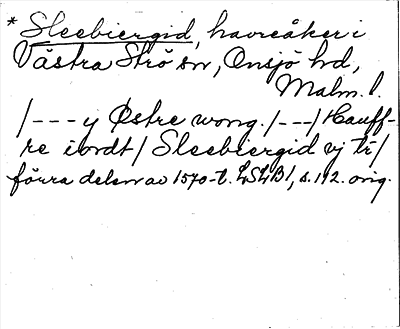 * Sleebiergid, havreåker i
Västra Strö sn, Onsjö hd,
Malm. l.
/--- y Østre wong. /---/ Hauff-
re iordt / Sleebiergid vj tr /
förra delen av 1570-t. LSLB1, s. 192. orig.